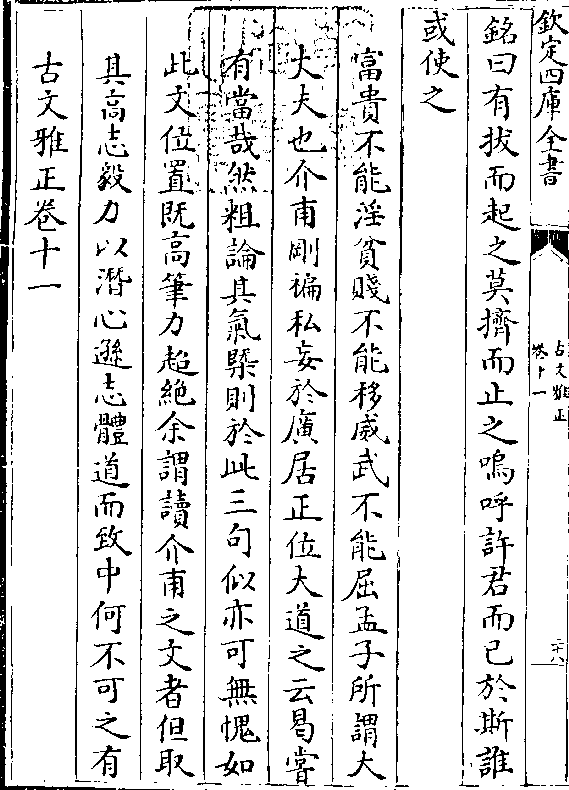 欽定四庫全書
古文雅正
卷十一
二十八
銘曰有拔而起之莫擠而止之嗚呼許君而已於斯誰
或使之
富貴不能淫貧賤不能移威武不能屈孟子所謂大
丈夫也介甫剛褊私妄於廣居正位大道之云曷嘗
有當哉然粗論其氣槩則於此三句似亦可無愧如
此文位置既高筆力超絶余謂讀介甫之文者但取
其高志毅力以潛心遜志體道而致中何不可之有
古文雅正卷十一